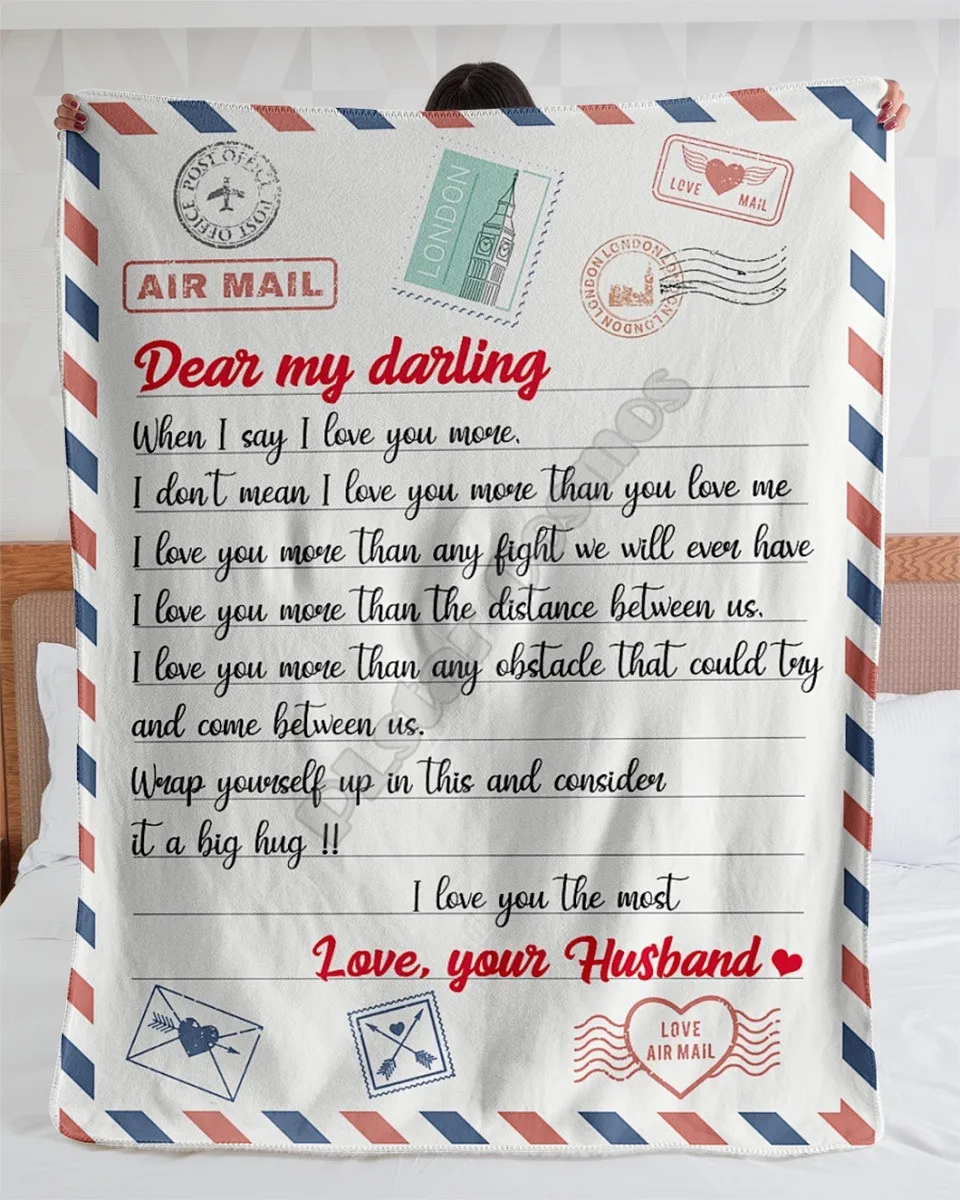 POST OFFICE POST OFFICE
LONDON
LOVE MAIL
AIR MAIL
LONDON LONDON LONDON LONDON
Dear my darling
When I say I love you more.
I don't mean I love you more than you love me
I love you more than any fight we will ever have
I love you more than the distance between us.
I love you more than any obstacle that could try
and come between us.
Wrap yourself up in this and consider
it a big hug !!
I love you the most
Love, your Husband
LOVE
AIR MAIL